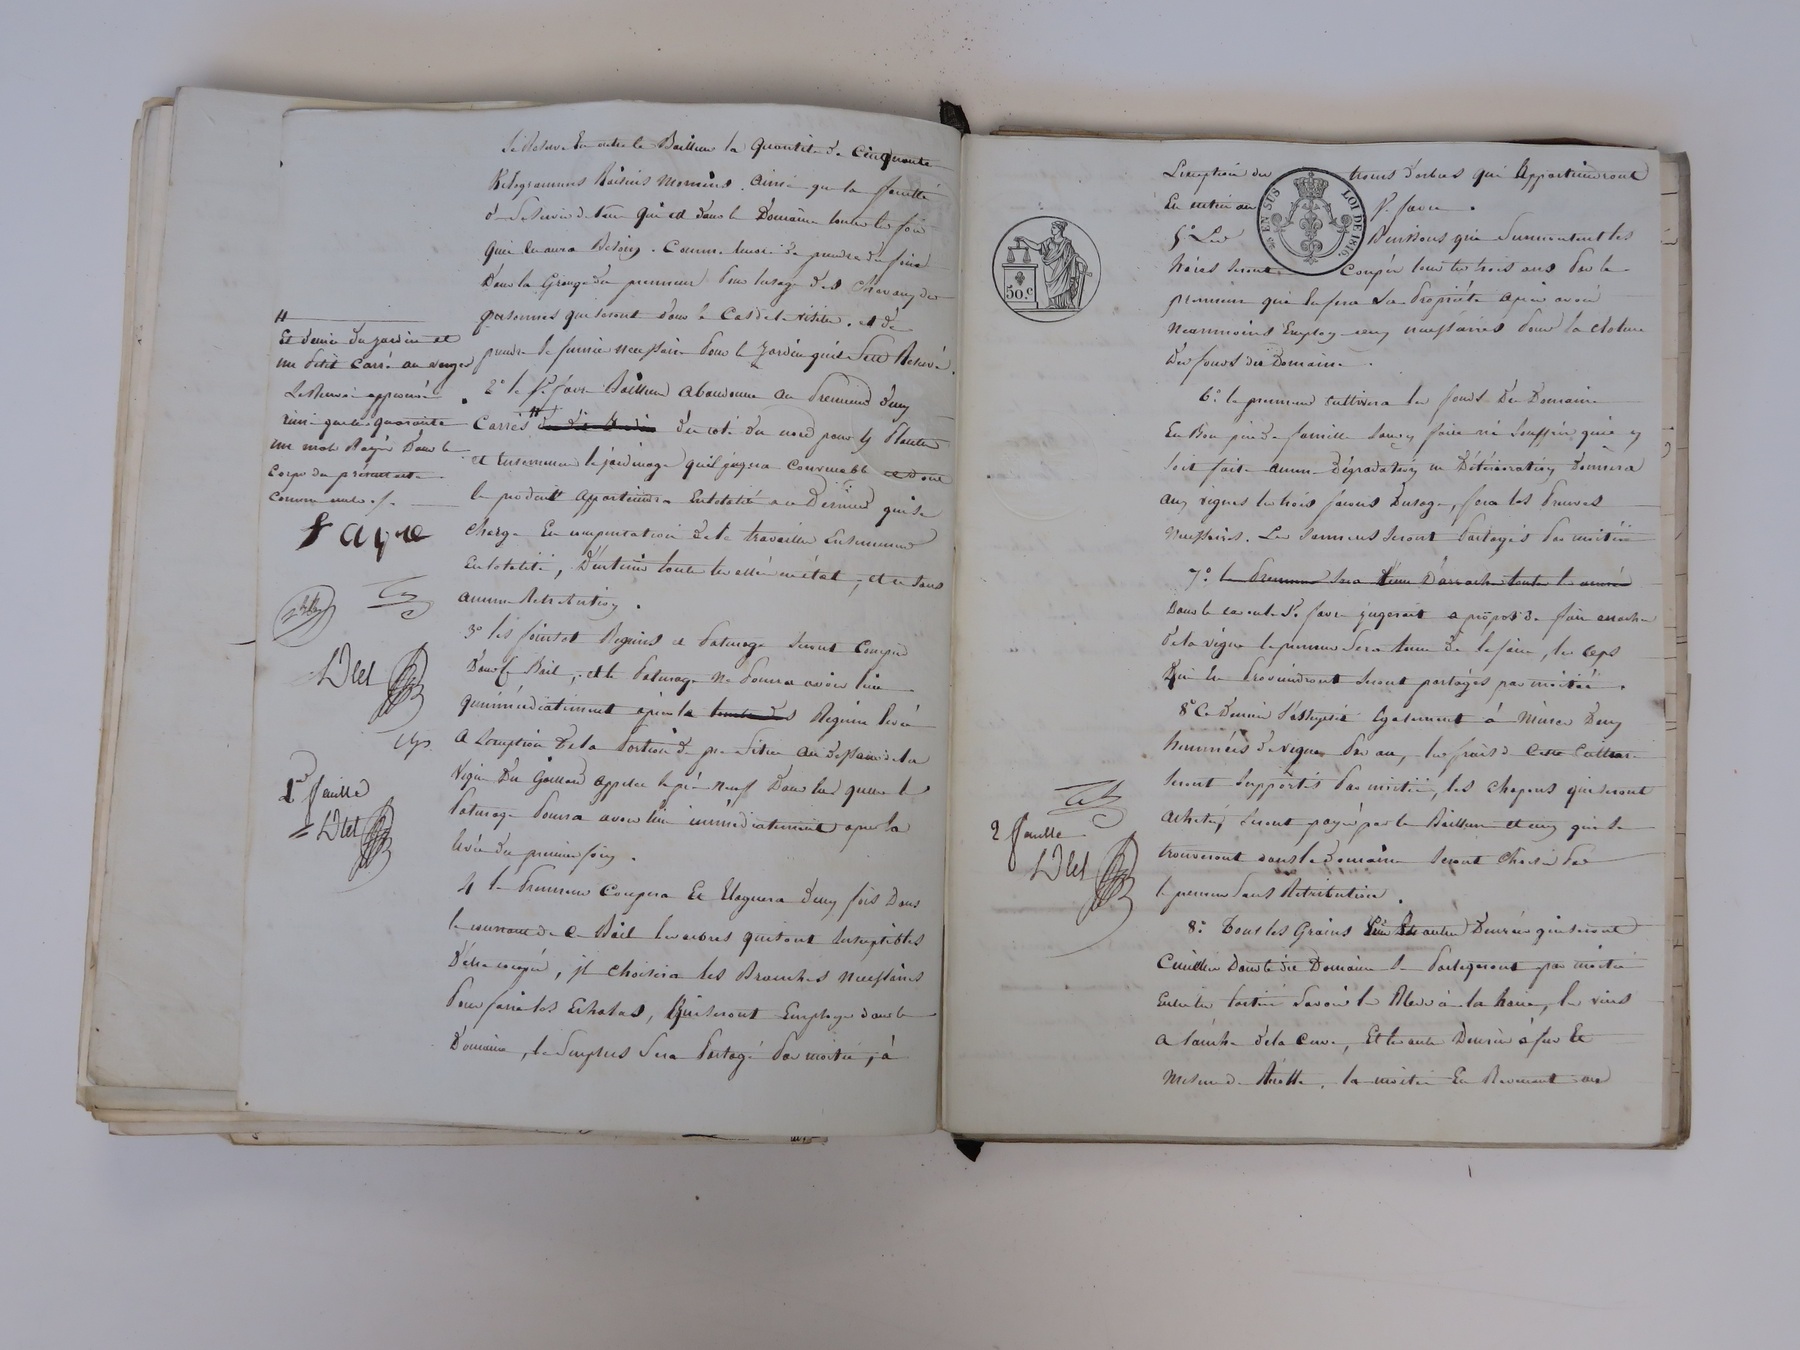 Se Réserve En outre le Bailleur la quantité de Cinquante
Kilogrammes Raisins Mornins. ainsi que la faculté
de Se Servir du four qui est dans le Domaine toutes les fois
qu'il en aura Besoin. Comme aussi de prendre du foin
Dans la Grange du preneur Pour lusage des chevaux des
personnes qui seront dans le Cas de le visiter. et de
prendre le fumier necessaire Pour le Jardin qui Se Reservé.
2° le Sr. favre Bailleur abandonne au Preneur Deux
Carrés du dit Jardin du coté du nord pour y Planter
et Ensemencer le jardinage quil jugera Convenable
le produit appartiendra En totalité a ce Dernier qui se
charge En compensation de le travailler Ensemencer
En totalité, D'entretenir toutes les allées en état, et ce sans
aucune Retribution.
3° les foins et Regains et Paturage Seront Compris
Dans le Bail, et le Paturage Ne Pourra avoir lieu
qu'immédiatement après la Regain levé
A Lexception de la Portion de pré Située au Dessous de la
Vigne Du Gaillard appelée le pré neuf Dans laquelle le
Paturage Pourra avoir lieu immédiatement apres la
levée du premier foin.
4 le Preneur Coupera Et Elaguera Deux fois Dans
le courant de ce Bail les arbres qui sont Susceptibles
D'être coupés, il choisira les Branches Necessaires
Pour faire les Echalas, qui seront Employés dans le
Domaine, le Surplus Sera Partagé Par moitié, à
Et demie du jardin et
un Petit Carré au verger
Le Renvoi approuvé
ainsi que les quarante
un mots Rayés Dans le
Corps du présent acte
comme nuls
Favre
1re feuille
Lexception des troncs d'arbres qui Appartiendront
En entier au Sr. favre.
EN SUS LOI DE 1816.
50.c
5° Les Buissons qui Surmontent les
haies seront coupés tous les trois ans Par le
preneur qui les fera Sa Propriété après avoir
neanmoins Employé ceux necessaires Pour la cloture
Des fonds du Domaine.
6° le preneur cultivera les fonds Du Domaine
En Bon père de famille Sans y faire ni Souffrir quil y
Soit fait aucune Dégradation ni Détérioration Donnera
aux vignes les trois façons Dusage, fera les Preuves
Necessaires. Les Sarmens Seront Partagés Par moitié
7° le Preneur Sera Tenu D'arracher toutes les années
Dans le cas ou le Sr. favre jugerait a propos de faire arracher
De la vigne le preneur Sera tenu De le faire, les ceps
Qui En Proviendront Seront partagés par moitié.
8° Ce Dernier Sassujetit Egalement à Miner Deux
hommées de vigne Par an, les frais de Cette Culture
Seront Supportés Par moitié, les chapons qui Seront
Achetés, Seront payés par le Bailleur et ceux qui Se
trouveront dans le Domaine Seront choisis Par
le preneur Sans Retribution.
2 feuille
8° Tous les Grains autres Denrées qui seront
Cueillis Dans le dit Domaine Se Partageront par moitié
Entre les Parties Savoir les Bleds à la haie, les vins
a l'anche de la cuve, Et les autres Denrées à fur Et
Mesure de Récolte, la moitié En Revenant au